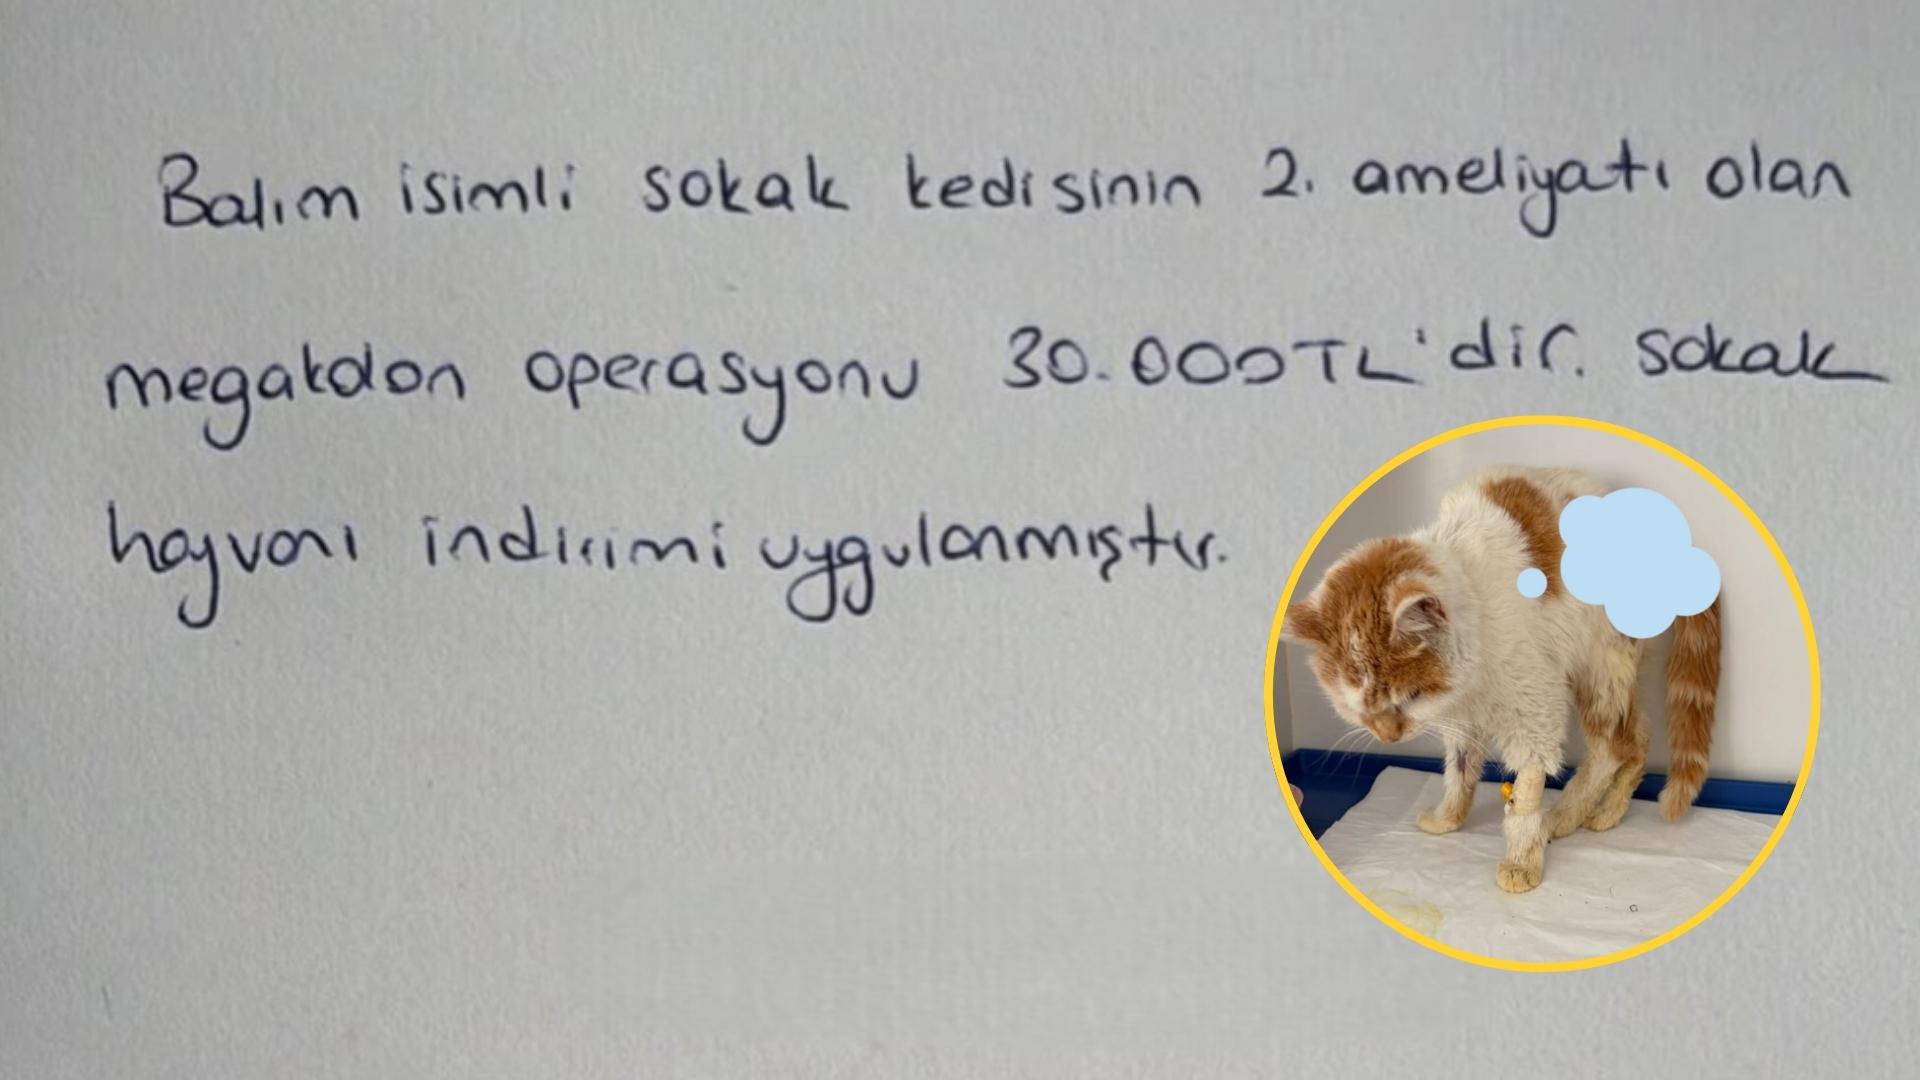 Balım isimli sokak kedisinin 2. ameliyatı olan
megakolon operasyonu 30.000TL'dir. sokak
hayvanı indirimi uygulanmıştır.